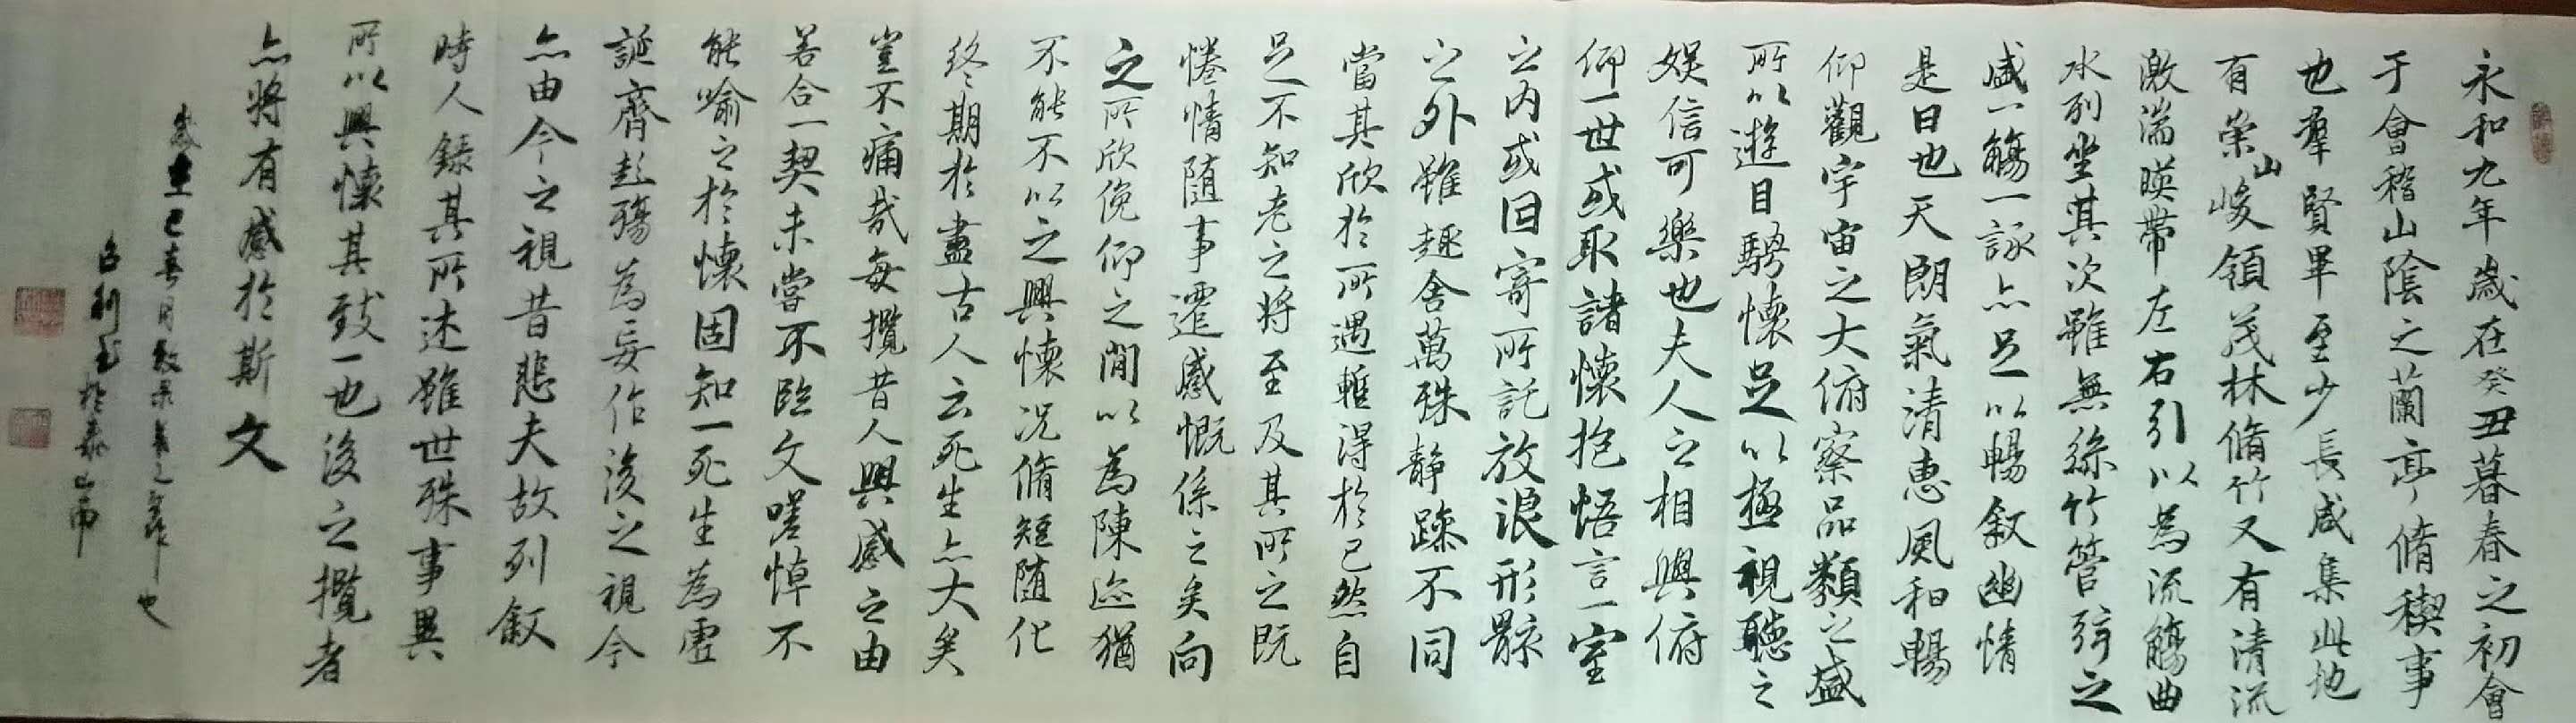 永和九年歲在癸丑暮春之初會
于會稽山陰之蘭亭脩稧事
也羣賢畢至少長咸集此地
有崇山峻領茂林脩竹又有清流
激湍暎帶左右引以為流觴曲
水列坐其次雖無絲竹管弦之
盛一觴一詠亦足以暢敘幽情
是日也天朗氣清惠風和暢
仰觀宇宙之大俯察品類之盛
所以遊目騁懷足以極視聽之
娛信可樂也夫人之相與俯
仰一世或取諸懷抱悟言一室
之內或因寄所託放浪形骸
之外雖趣舍萬殊靜躁不同
當其欣於所遇蹔得於己然自
足不知老之將至及其所之既
惓情隨事遷感慨係之矣向
之所欣俛仰之閒以為陳迹猶
不能不以之興懷況脩短隨化
終期於盡古人云死生亦大矣
豈不痛哉每攬昔人興感之由
若合一契未嘗不臨文嗟悼不
能喻之於懷固知一死生為虛
誕齊彭殤為妄作後之視今
亦由今之視昔悲夫故列敘
時人錄其所述雖世殊事異
所以興懷其致一也後之攬者
亦將有感於斯文
歲巳春月之也
於泰山南